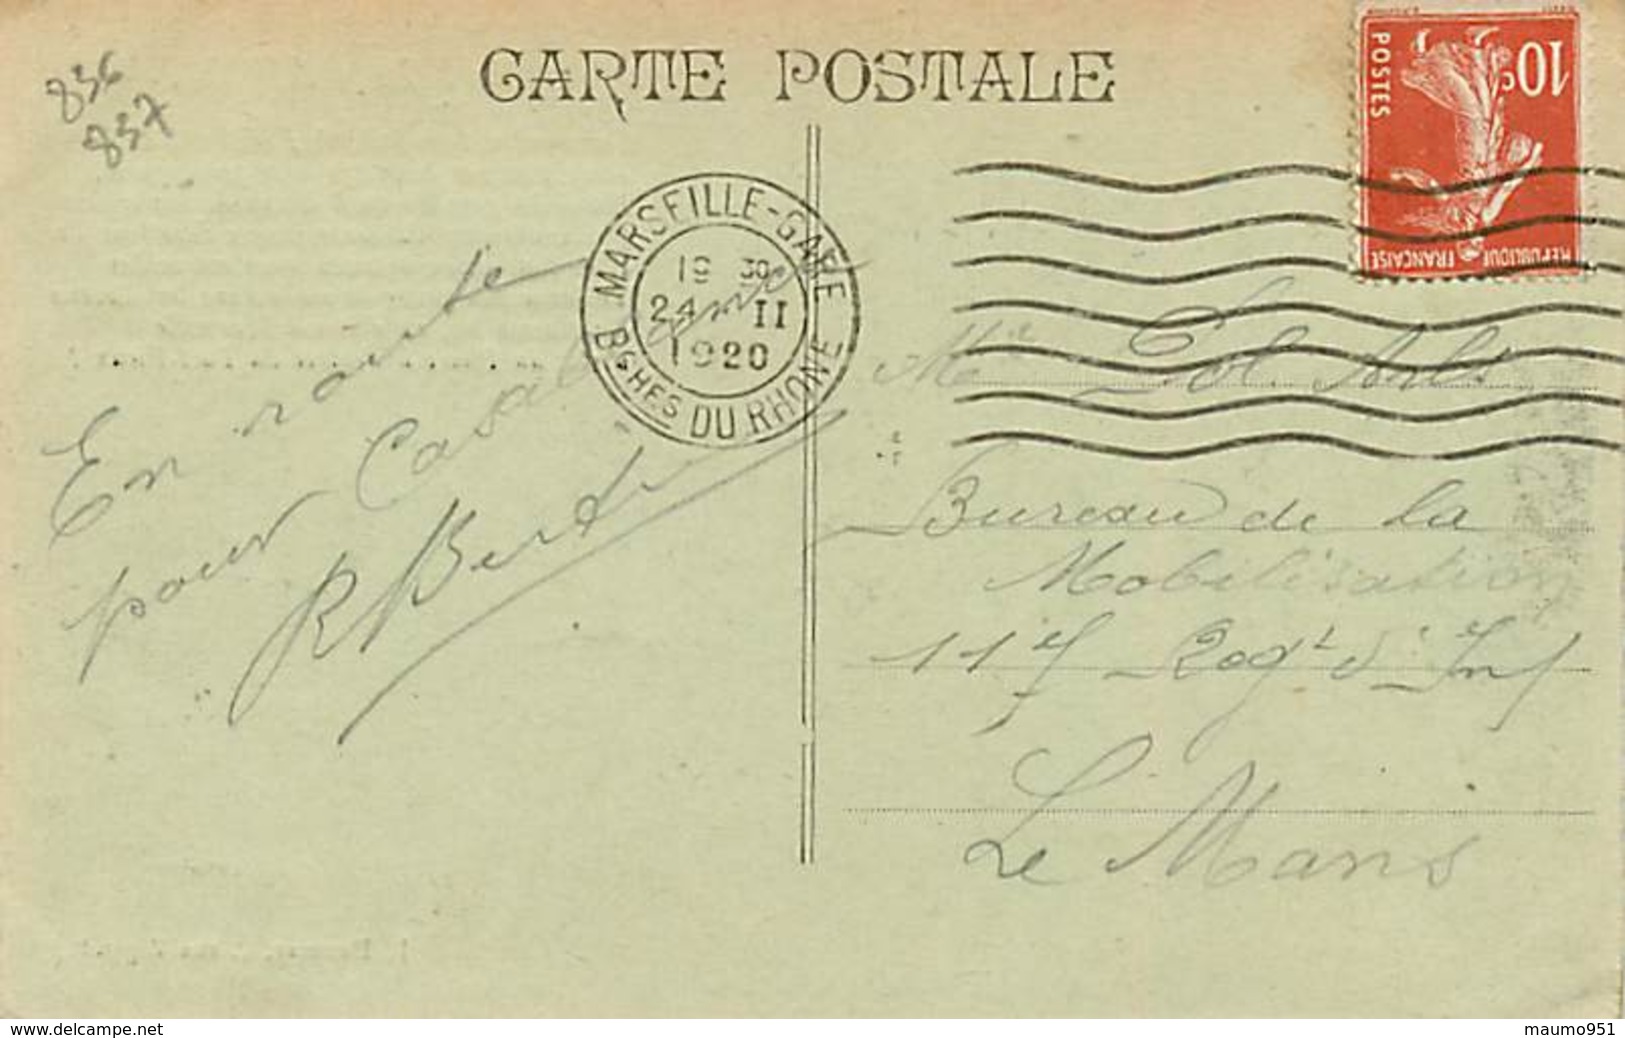 836
837
CARTE POSTALE
10c
POSTES
REPUBLIQUE FRANÇAISE
MARSEILLE-GARE
19 30
24 II
1920
Bches DU RHONE
En route
pour Casablanca
R Berti
Mr
Bureau de la
Mobilisation
117 Regt d'Inf
Le Mans
www.delcampe.net
maumo951